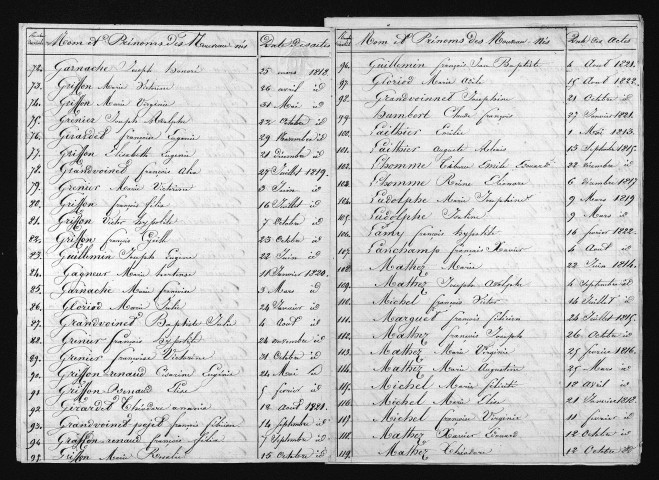 Nom et Prénoms des Nouveau nés Date des actes
72. Garnache Joseph Honoré 25 mars 1818.
73. Griffon Marie Victoire 26 avril id
74. Griffon Marie Virginie 31 Mai id
75. Grenier Joseph 22 Octobre id
76. Girardet françoise Eugenie 29 Novembre id
77. Griffon Elisabeth Eugenie 21 décembre id
78. Grandvoinet françois 27 Juillet 1819.
79. Grenier Marie Victoire 3 Juin id
80. Griffon françois félix 16 Juillet id
81. Griffon Victor hypolite 7 Octobre id
82. Griffon françois 23 Octobre id
83. Guillemin Joseph Eugene 22 Juin id
84. Gagneur Marie hortense 11 Janvier 1820.
85. Garnache Marie françoise 3 Mars id
86. Gloriod Marie Julie 24 Janvier id
87. Grandvoinet Baptiste Jules 4 Août id
88. Grenier françois hypolite 24 novembre id
89. Grenier françoise Victorine 31 Octobre id
90. Griffon renaud Eugénie 24 Mai
91. Griffon Renaud Elise 5 février id
92. Girardet Théodore 12 Août 1821.
93. Grandvoinet françois 14 Septembre id
94. Griffon renaud françois félix 7 Septembre id
95. Griffon Marie Rosalie 15 Octobre id
Nom et Prénoms des Nouveau Nés Date des Actes
96. Guillemin françois Jean Baptiste 4 Août 1821.
97. Gloriod Marie 15 Août 1822.
98. Grandvoinnet Josephine 21 Octobre id
99. Humbert Claude françois 27 Janvier 1821.
100. Laithier 1 Mai 1813.
101. Laithier Auguste 13 Septembre 1815.
102. Lhomme Emile Edouard 22 décembre id
103. Lhomme Reine Eléonore 6 décembre 1817
104. Ludolphe Marie Josephine 9 Mars 1819
105. Ludolphe 9 Mars id
106. Lamy françois hypolite 16 février 1822.
107. Lanchamp françois Xavier 4 Août id
108. Mathez Marie 22 Juin 1814.
109. Mathez Joseph Adolphe 4 Septembre id
110. Michel françois Victor 14 Juillet id
111. Marguet françois 24 Juillet 1815.
112. Mathez françois Joseph 26 Octobre id
113. Mathez Marie Virginie 25 février 1816.
114. Mathez Marie Augustine 25 Mars id
115. Michel Marie félicité 10 avril id
116. Michel Marie Elise 21 Janvier 1818.
117. Michel françoise Virginie 11 février id
118. Mathez Xavier Edouard 12 Octobre id
119. Mathez Théodore 12 Octobre id